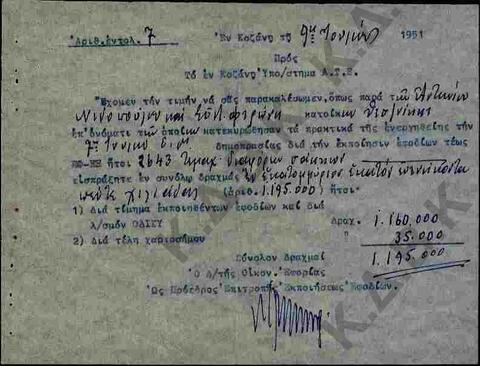 Ἀριθ.ἐντολ. 7 Ἐν Κοζάνῃ τῇ 9ῃ Ἰουνίου 1951
Πρός
Τό ἐν Κοζάνῃ Ὑπο/στημα Α.Τ.Ε.
Ἔχομεν τήν τιμήν νά σᾶς παρακαλέσωμεν,ὅπως παρά τῶν Ἀντωνίου
καί κατοίκων
ἐπ'ὀνόματι τῶν ὁποίων κατεκυρώθησαν τά πρακτικά τῆς ἐνεργηθείσης τήν
7ην Ἰουνίου δημοπρασίας διά τήν ἐκποίησιν ἐφοδίων τέως
ἤτοι 2643 τεμαχ. διαφόρων σάκκων
εἰσπράξητε ἐν συνόλῳ δραχμάς ἓν ἑκατομμύριον ἑκατόν ἐνενήκοντα
πέντε χιλιάδας (ἀριθ. 1.195.000) ἤτοι·
1) Διά τίμημα ἐκποιηθέντων ἐφοδίων καί διά
λ/σμόν ΟΔΙΣΥ Δραχ. 1.160.000
2) Διά τέλη χαρτοσήμου " 35.000
Σύνολον δραχμαί 1.195.000
Ὁ Δ/τής Οἰκον. Ἐφορίας
Ὡς Πρόεδρος Ἐπιτροπῆς Ἐκποιήσεως Ἐφοδίων.